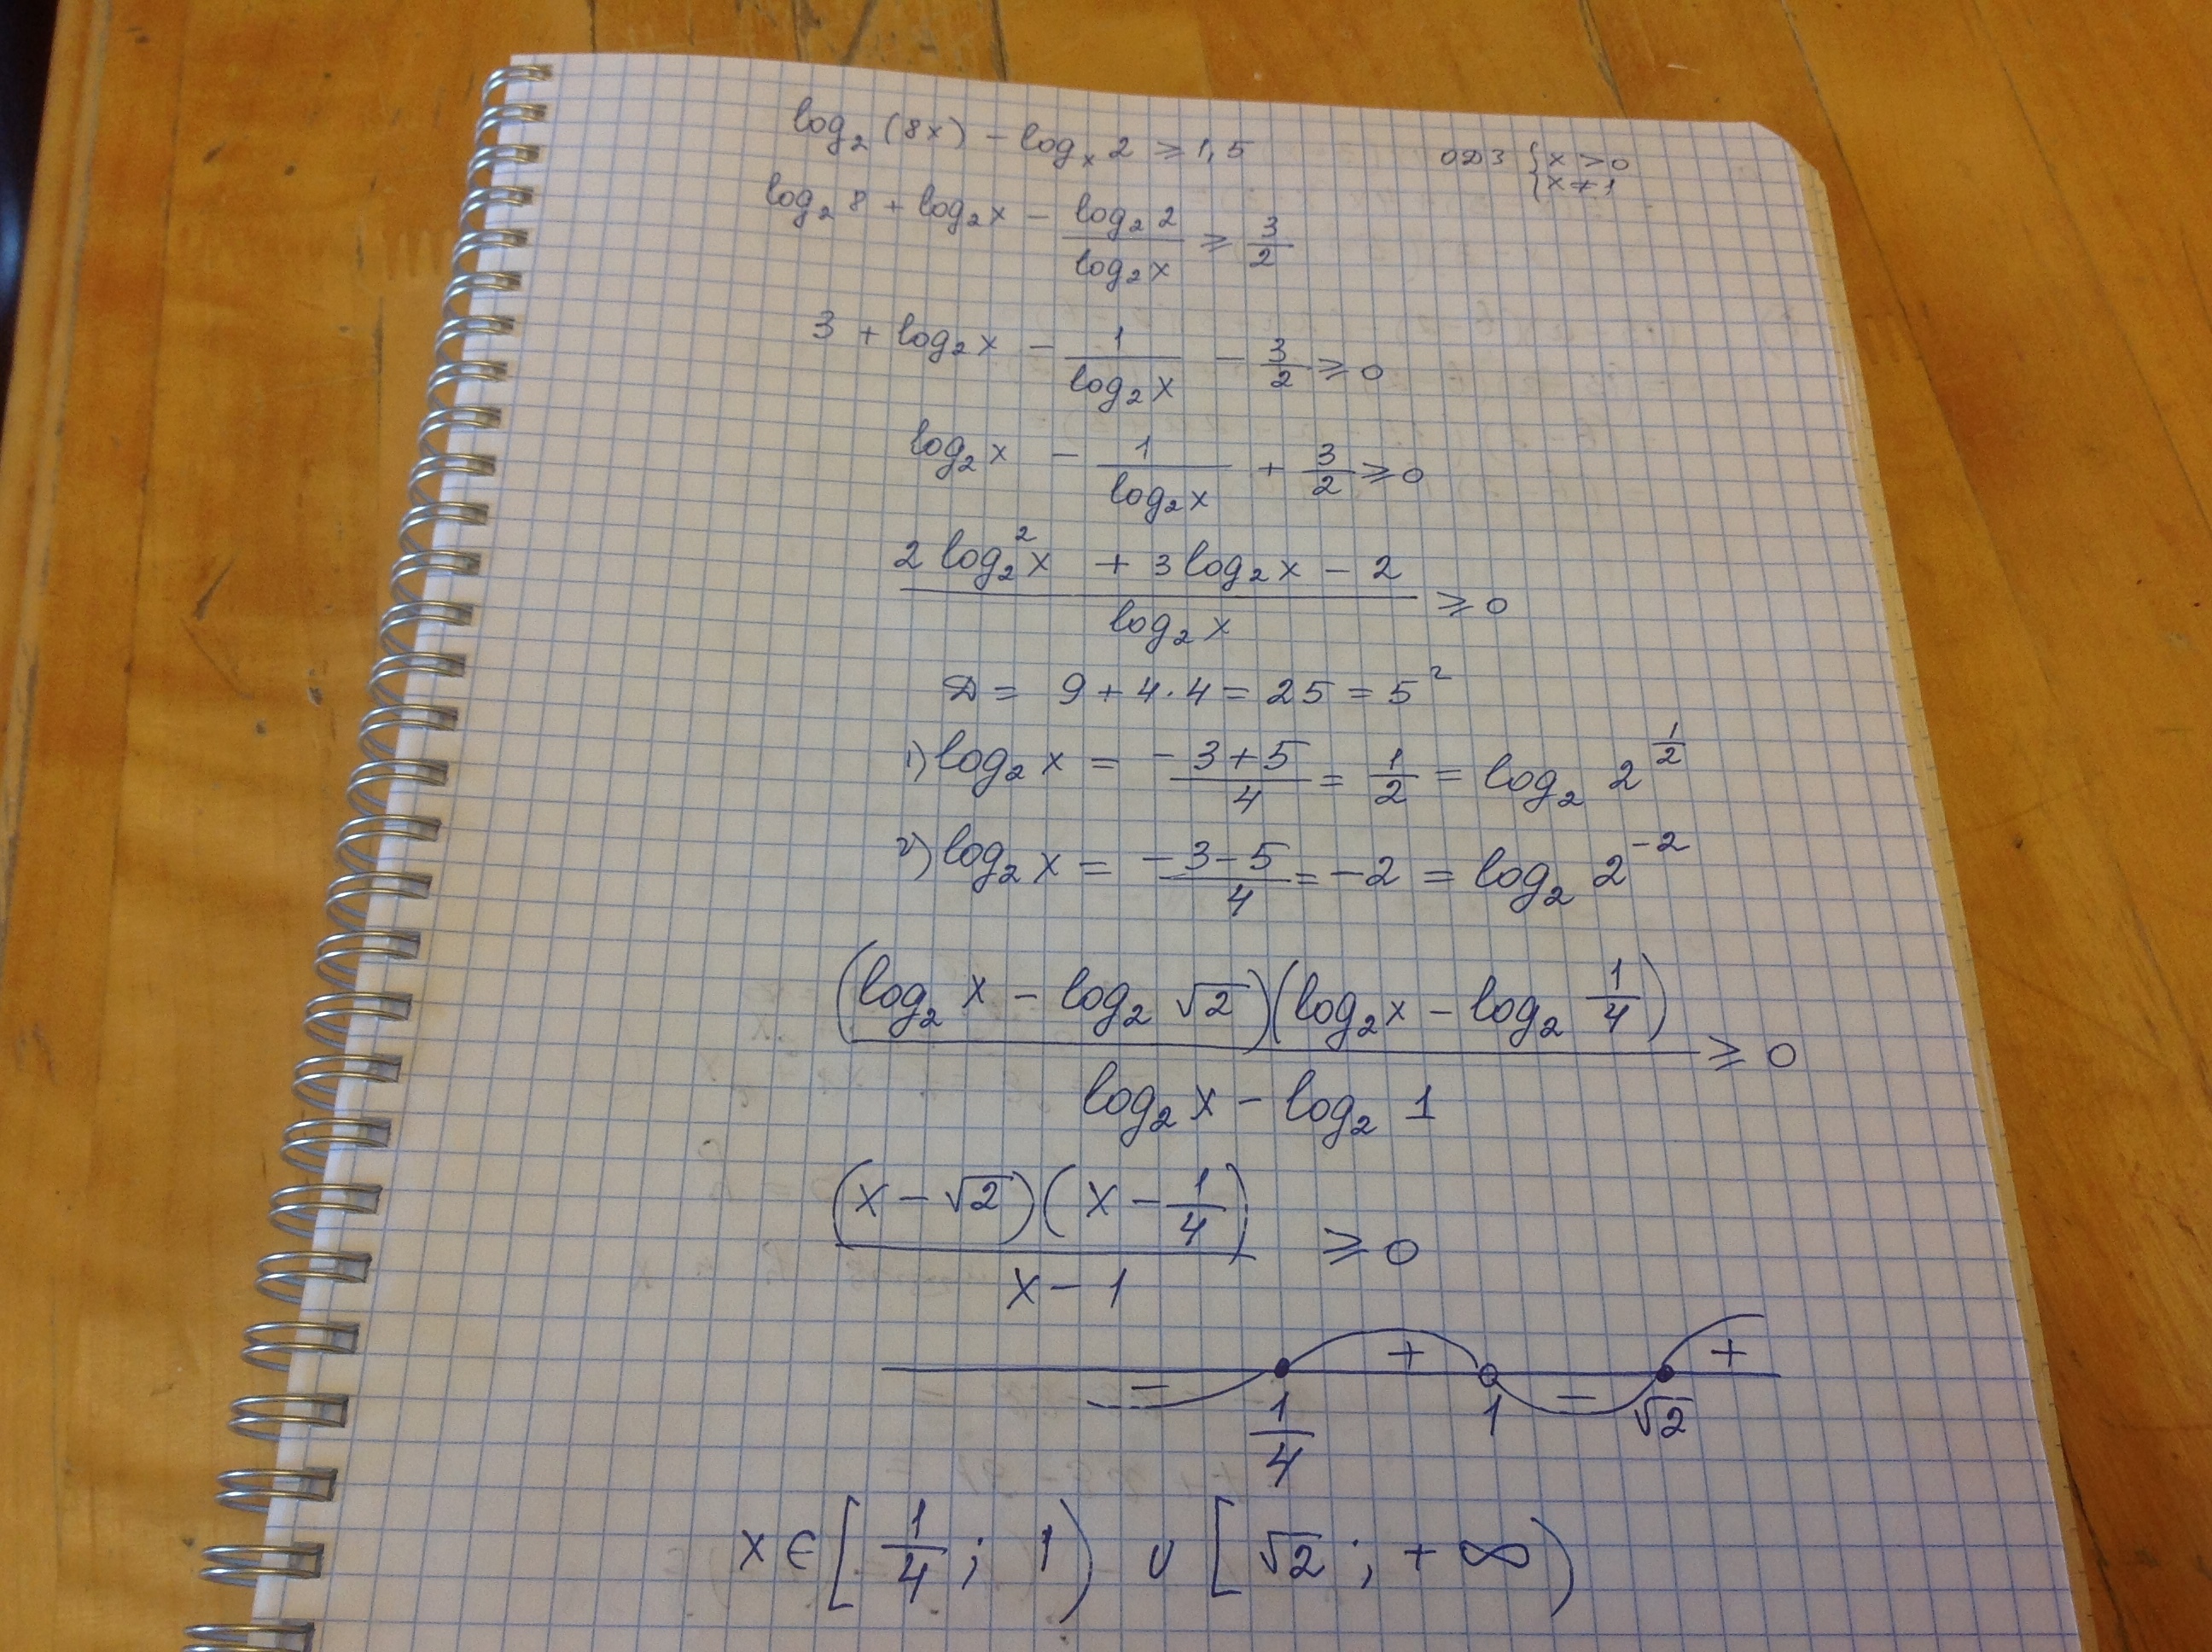 log₂(8x) - logₓ2 ≥ 1,5
ОДЗ { x > 0
x ≠ 1
log₂8 + log₂x - log₂2 / log₂x ≥ 3/2
3 + log₂x - 1 / log₂x - 3/2 ≥ 0
log₂x - 1 / log₂x + 3/2 ≥ 0
(2 log₂²x + 3 log₂x - 2) / log₂x ≥ 0
Д = 9 + 4·4 = 25 = 5²
1) log₂x = (-3+5)/4 = 1/2 = log₂ 2^(1/2)
2) log₂x = (-3-5)/4 = -2 = log₂ 2^(-2)
(log₂x - log₂√2)(log₂x - log₂ 1/4) / (log₂x - log₂1) ≥ 0
(x - √2)(x - 1/4) / (x - 1) ≥ 0
- + - +
1/4 1 √2
x ∈ [1/4; 1) ∪ [√2; +∞)